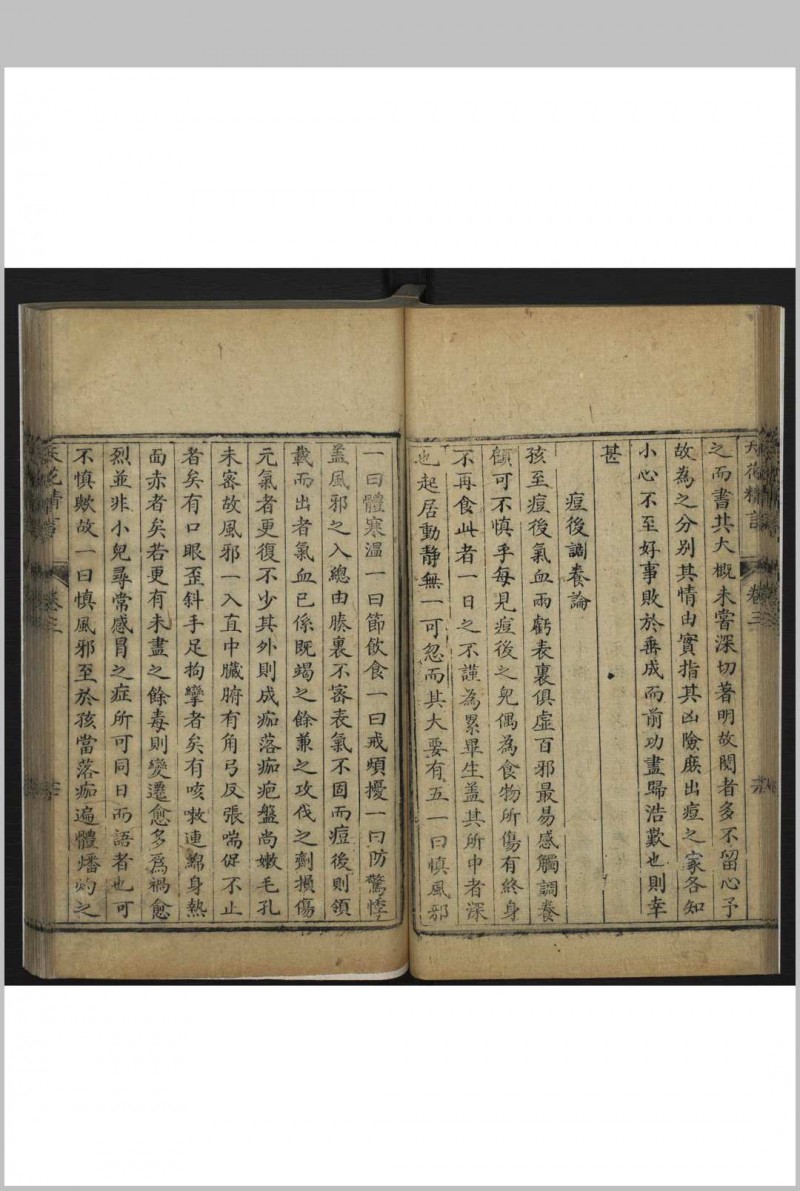 之而書其大概未嘗深切著明故閱者多不留心予
故為之分别其情由實指其凶險庶出痘之家各知
小心不至好事敗於垂成而前功盡歸浩歎也則幸
甚
痘後調養論
孩至痘後氣血兩虧表裏俱虛百邪最易感觸調養
顧可不慎乎每見痘後之兒偶為食物所傷有終身
不再食此者一日之不謹為累畢生盖其所中者深
也起居動静無一可忽而其大要有五一曰慎風邪
一曰體寒温一曰節飲食一曰戒煩擾一曰防驚悸
盖風邪之入總由腠裏不密表氣不固而痘後則領
載而出者氣血已係既竭之餘兼之攻伐之劑損傷
元氣者更復不少其外則成痂落痂疤盤尚嫩毛孔
未密故風邪一入直中臟腑有角弓反張喘促不止
者矣有口眼歪斜手足拘攣者矣有咳嗽連綿身熱
面赤者矣若更有未盡之餘毒則變遷愈多爲禍愈
烈並非小兒尋常感冒之症所可同日而語者也可
不慎歟故一曰慎風邪至於孩當落痂遍體燔灼之
卷三